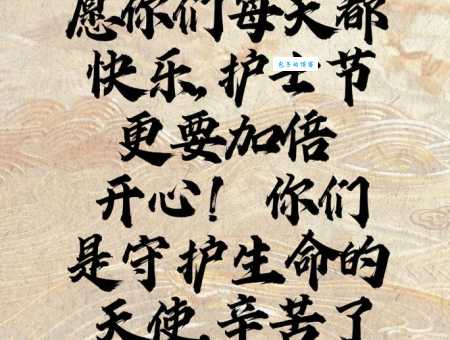 愿你们每天都
快乐,护士节
更要加倍
开心! 你们
是守护生命的
天使,辛苦了